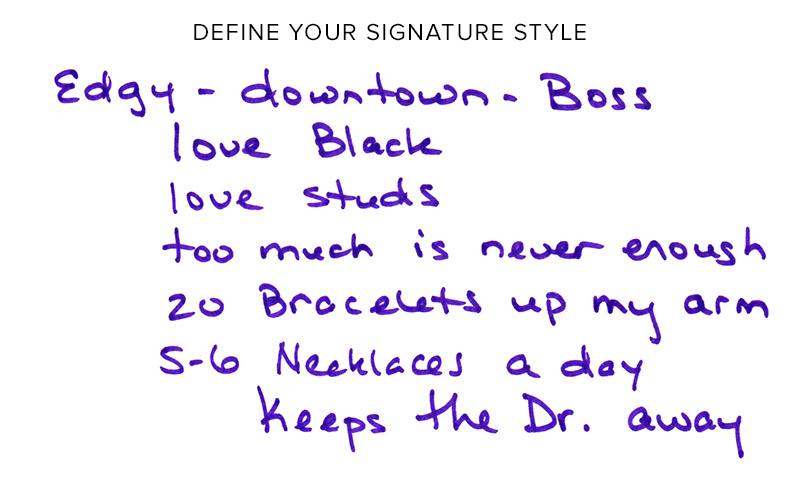 DEFINE YOUR SIGNATURE STYLE
Edgy - downtown - Boss
love Black
love studs
too much is never enough
20 Bracelets up my arm
5-6 Necklaces a day
keeps the Dr. away